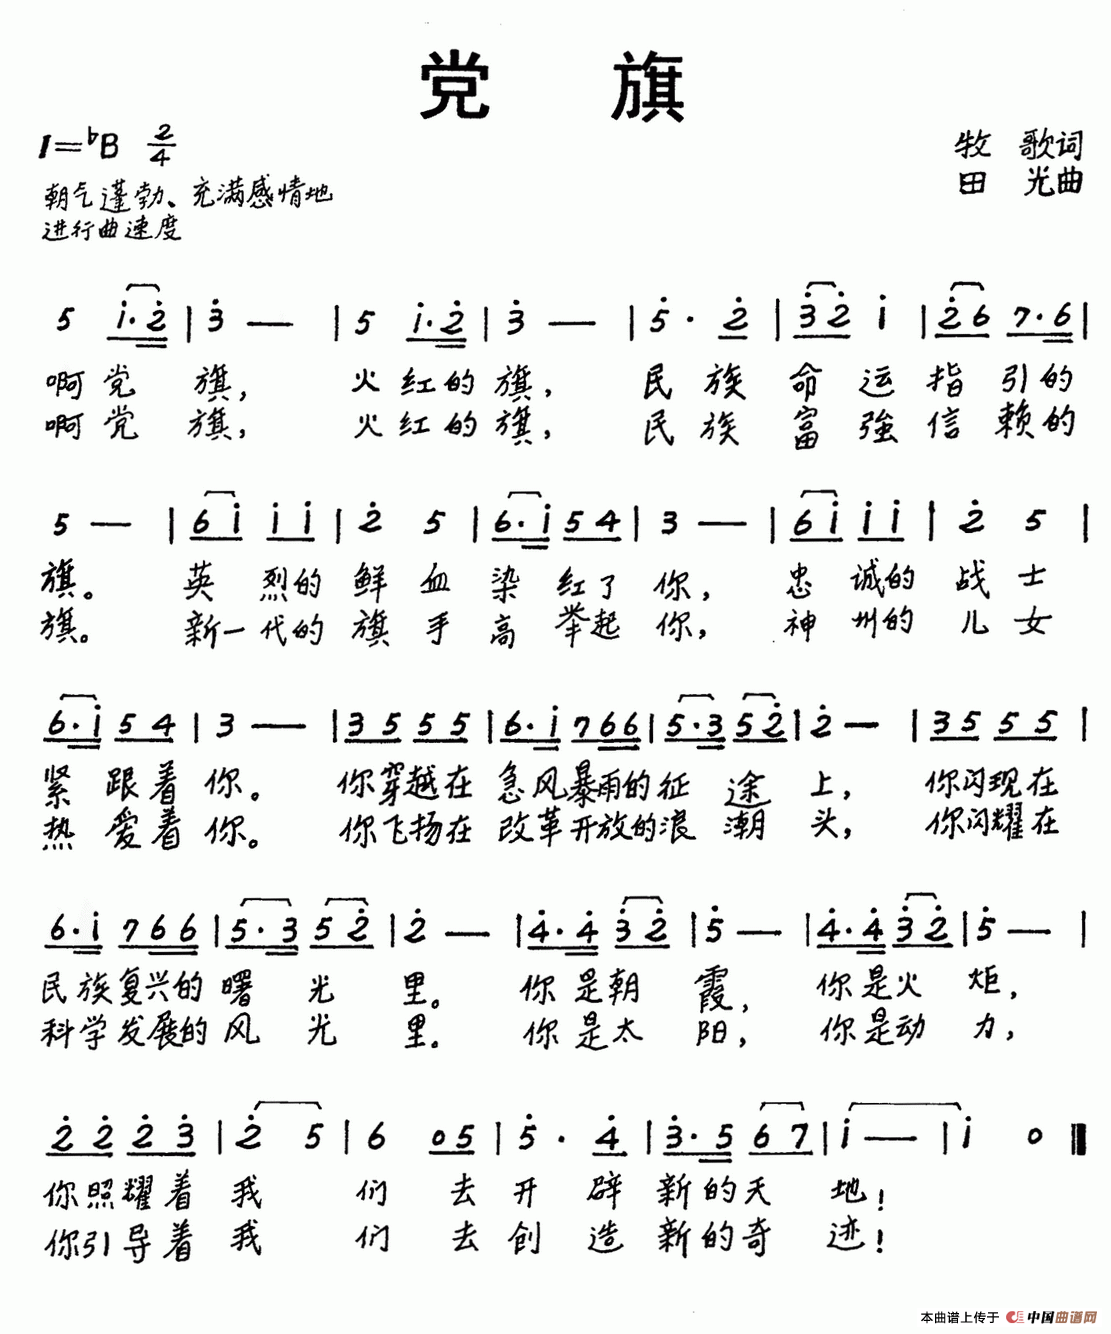 党 旗
1=♭B 2/4
牧 歌词
朝气蓬勃、充满感情地
田 光曲
进行曲速度
5 i·2 | 3 — | 5 i·2 | 3 — | 5· 2 | 32 i | 26 7·6 |
啊党 旗, 火红的旗, 民族命运指引的
啊党 旗, 火红的旗, 民族富強信赖的
5 — | 6i ii | 2 5 | 6·i 54 | 3 — | 6i ii | 2 5 |
旗。 英烈的鲜血染红了你, 忠诚的战士
旗。 新一代的旗手高举起你, 神州的儿女
6·i 54 | 3 — | 35 55 | 6·i 766 | 5·3 52 | 2 — | 35 55 |
紧跟着你。 你穿越在急风暴雨的征途上, 你闪现在
热爱着你。 你飞扬在改革开放的浪潮头, 你闪耀在
6·i 766 | 5·3 52 | 2 — | 4·4 32 | 5 — | 4·4 32 | 5 — |
民族复兴的曙光里。 你是朝霞, 你是火炬,
科学发展的风光里。 你是太阳, 你是动力,
22 23 | 2 5 | 6 05 | 5· 4 | 3·5 67 | i — | i 0 ‖
你照耀着我们去开辟新的天地!
你引导着我们去创造新的奇迹!
本曲谱上传于 中国曲谱网